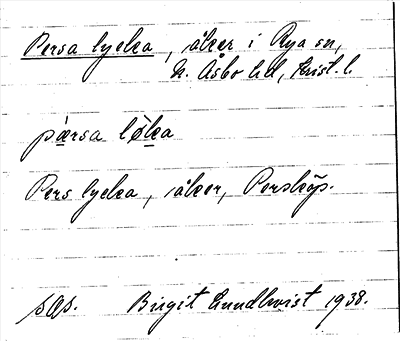 Persa lycka, åker i Rya sn,
N. Åsbo hd, Krist. l.
pæ̀rsa lø̀ka
Pers lycka, åker, Persköp.
sgs. Birgit Lundkvist 1938.